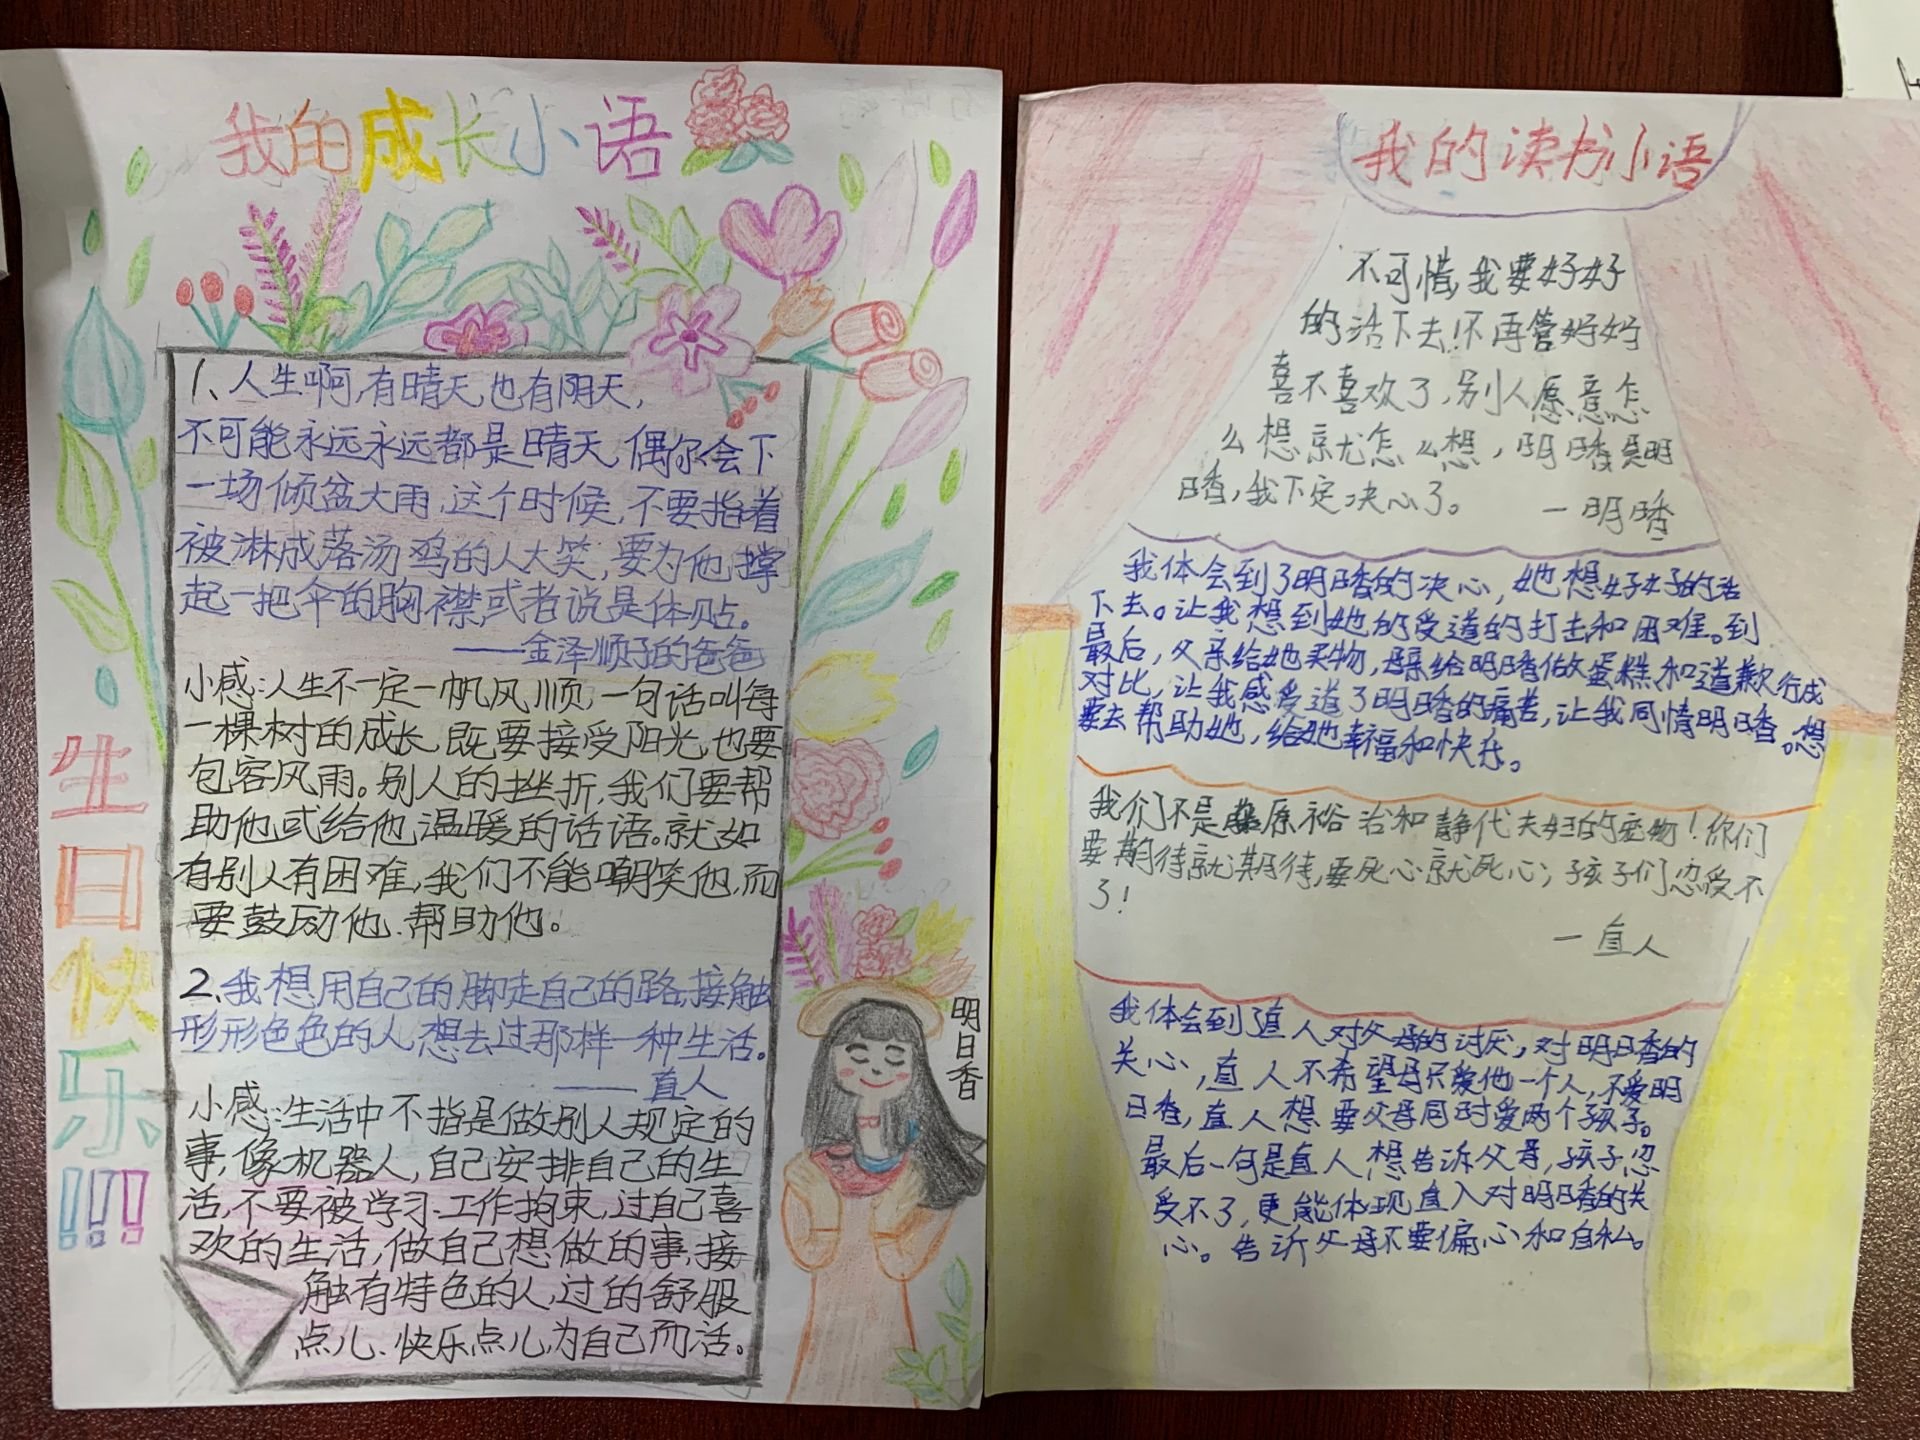 我的成长小语
1、人生啊,有晴天,也有阴天,
不可能永远永远都是晴天,偶尔会下
一场倾盆大雨,这个时候,不要指着
被淋成落汤鸡的人大笑,要为他撑
起一把伞的胸襟,或者说是体贴。
——金泽顺子的爸爸
小感:人生不一定一帆风顺,一句话叫每
一棵树的成长,既要接受阳光,也要
包容风雨。别人的挫折,我们要帮
助他,或给他温暖的话语。就如
有别人有困难,我们不能嘲笑他,而
要鼓励他、帮助他。
2、我想用自己的脚走自己的路,接触
形形色色的人,想去过那样一种生活。
——直人
小感:生活中不指是做别人规定的
事,像机器人,自己安排自己的生
活,不要被学习、工作拘束,过自己喜
欢的生活,做自己想做的事,接
触有特色的人,过的舒服
点儿、快乐点儿,为自己而活。
生日快乐!!!
明日香
我的读书小语
不可惜,我要好好
的活下去!不再管妈妈
喜不喜欢了,别人愿意怎
么想就怎么想,明日香是明
日香,我下定决心了。
一明日香
我体会到了明日香的决心,她想好好的活
下去。让我想到她的受道的打击和困难。到
最后,父亲给她买物,母亲给明日香做蛋糕和道歉行成
对比,让我感受道了明日香的痛苦,让我同情明日香。想
要去帮助她,给她幸福和快乐。
我们不是藤原裕治和静代夫妇的宠物!你们
要期待就期待,要死心就死心;孩子们忍受不
了!
一直人
我体会到了直人对父母的讨厌,对明日香的
关心,直人不希望母只爱他一个人,不爱明
日香,直人想要父母同时爱两个孩子。
最后一句是直人想告诉父母,孩子忍
受不了,更能体现直人对明日香的关
心。告诉父母不要偏心和自私。